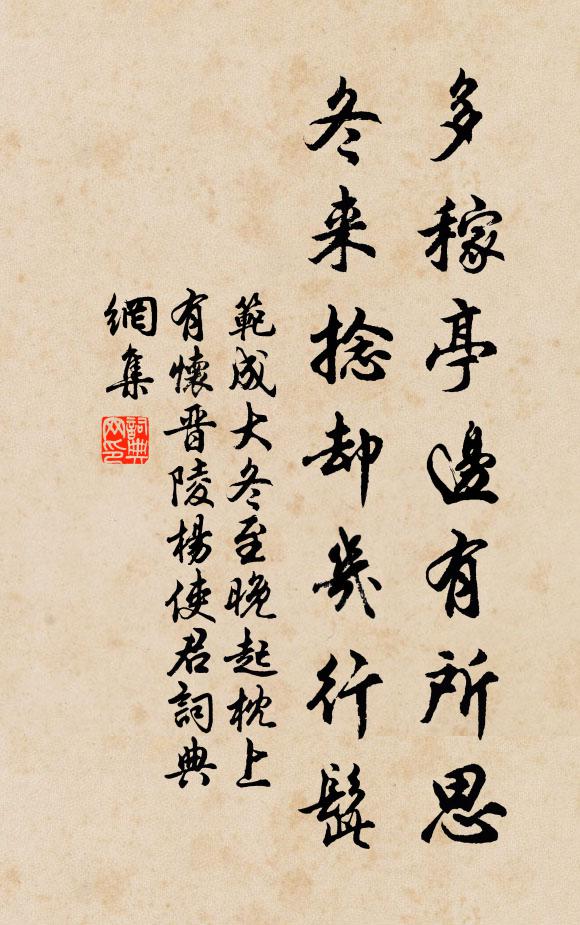 多稼亭邊有所思
冬来捻却幾行髭
範成大冬至晚起枕上
有懷晋陵楊使君詞典
網集
詞典网印